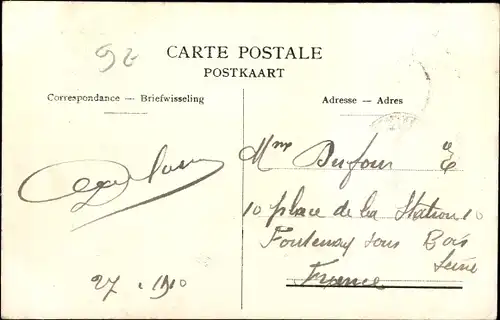 92
CARTE POSTALE
POSTKAART
Correspondance — Briefwisseling
Adresse — Adres
Mme Dufour E
10 place de la Station 10
Fontenay sous Bois
Seine
France
27 . 1910